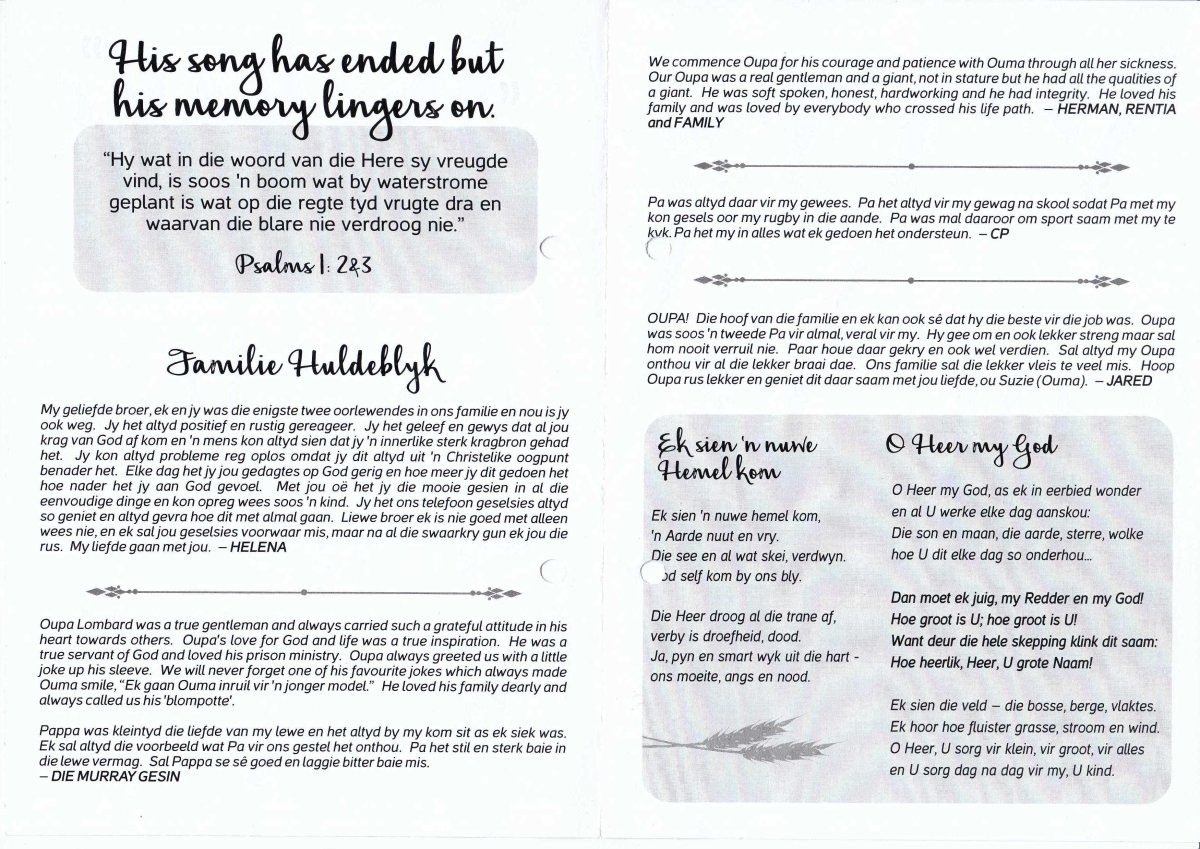 His song has ended but
his memory lingers on.
“Hy wat in die woord van die Here sy vreugde
vind, is soos 'n boom wat by waterstrome
geplant is wat op die regte tyd vrugte dra en
waarvan die blare nie verdroog nie.”
Psalms 1: 2&3
Familie Huldeblyk
My geliefde broer, ek en jy was die enigste twee oorlewendes in ons familie en nou is jy
ook weg. Jy het altyd positief en rustig gereageer. Jy het geleef en gewys dat al jou
krag van God af kom en 'n mens kon altyd sien dat jy 'n innerlike sterk kragbron gehad
het. Jy kon altyd probleme reg oplos omdat jy dit altyd uit 'n Christelike oogpunt
benader het. Elke dag het jy jou gedagtes op God gerig en hoe meer jy dit gedoen het
hoe nader het jy aan God gevoel. Met jou oë het jy die mooie gesien in al die
eenvoudige dinge en kon opreg wees soos 'n kind. Jy het ons telefoon geselsies altyd
so geniet en altyd gevra hoe dit met almal gaan. Liewe broer ek is nie goed met alleen
wees nie, en ek sal jou geselsies voorwaar mis, maar na al die swaarkry gun ek jou die
rus. My liefde gaan met jou. – HELENA
Oupa Lombard was a true gentleman and always carried such a grateful attitude in his
heart towards others. Oupa's love for God and life was a true inspiration. He was a
true servant of God and loved his prison ministry. Oupa always greeted us with a little
joke up his sleeve. We will never forget one of his favourite jokes which always made
Ouma smile, “Ek gaan Ouma inruil vir 'n jonger model.” He loved his family dearly and
always called us his 'blompotte'.
Pappa was kleintyd die liefde van my lewe en het altyd by my kom sit as ek siek was.
Ek sal altyd die voorbeeld wat Pa vir ons gestel het onthou. Pa het stil en sterk baie in
die lewe vermag. Sal Pappa se sê goed en laggie bitter baie mis.
– DIE MURRAY GESIN
We commence Oupa for his courage and patience with Ouma through all her sickness.
Our Oupa was a real gentleman and a giant, not in stature but he had all the qualities of
a giant. He was soft spoken, honest, hardworking and he had integrity. He loved his
family and was loved by everybody who crossed his life path. – HERMAN, RENTIA
and FAMILY
Pa was altyd daar vir my gewees. Pa het altyd vir my gewag na skool sodat Pa met my
kon gesels oor my rugby in die aande. Pa was mal daaroor om sport saam met my te
kyk. Pa het my in alles wat ek gedoen het ondersteun. – CP
OUPA! Die hoof van die familie en ek kan ook sê dat hy die beste vir die job was. Oupa
was soos 'n tweede Pa vir almal, veral vir my. Hy gee om en ook lekker streng maar sal
hom nooit verruil nie. Paar houe daar gekry en ook wel verdien. Sal altyd my Oupa
onthou vir al die lekker braai dae. Ons familie sal die lekker vleis te veel mis. Hoop
Oupa rus lekker en geniet dit daar saam met jou liefde, ou Suzie (Ouma). – JARED
Ek sien 'n nuwe
Hemel kom
Ek sien 'n nuwe hemel kom,
'n Aarde nuut en vry.
Die see en al wat skei, verdwyn.
od self kom by ons bly.
Die Heer droog al die trane af,
verby is droefheid, dood.
Ja, pyn en smart wyk uit die hart -
ons moeite, angs en nood.
O Heer my God
O Heer my God, as ek in eerbied wonder
en al U werke elke dag aanskou:
Die son en maan, die aarde, sterre, wolke
hoe U dit elke dag so onderhou...
Dan moet ek juig, my Redder en my God!
Hoe groot is U; hoe groot is U!
Want deur die hele skepping klink dit saam:
Hoe heerlik, Heer, U grote Naam!
Ek sien die veld – die bosse, berge, vlaktes.
Ek hoor hoe fluister grasse, stroom en wind.
O Heer, U sorg vir klein, vir groot, vir alles
en U sorg dag na dag vir my, U kind.